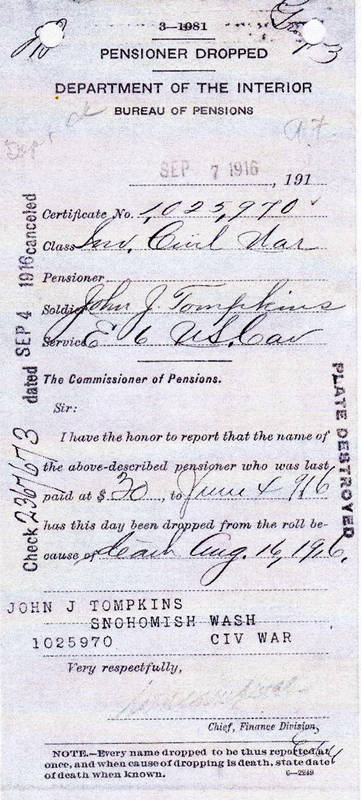 3—1081
PENSIONER DROPPED
DEPARTMENT OF THE INTERIOR
BUREAU OF PENSIONS
SEP 7 1916, 191
Certificate No. 1,025,970
Class Inv. Civil War
Pensioner
Soldier John J. Tompkins
Service E 6 U.S. Cav
The Commissioner of Pensions.
Sir:
I have the honor to report that the name of
the above-described pensioner who was last
paid at $ 30, to June 4 916
has this day been dropped from the roll be-
cause of death Aug. 16, 1916.
JOHN J TOMPKINS
SNOHOMISH WASH
1025970 CIV WAR
Very respectfully,
Chief, Finance Division.
NOTE.—Every name dropped to be thus reported at
once, and when cause of dropping is death, state date
of death when known.
6—2249
Check 2367673 dated SEP 4 1916 canceled
PLATE DESTROYED